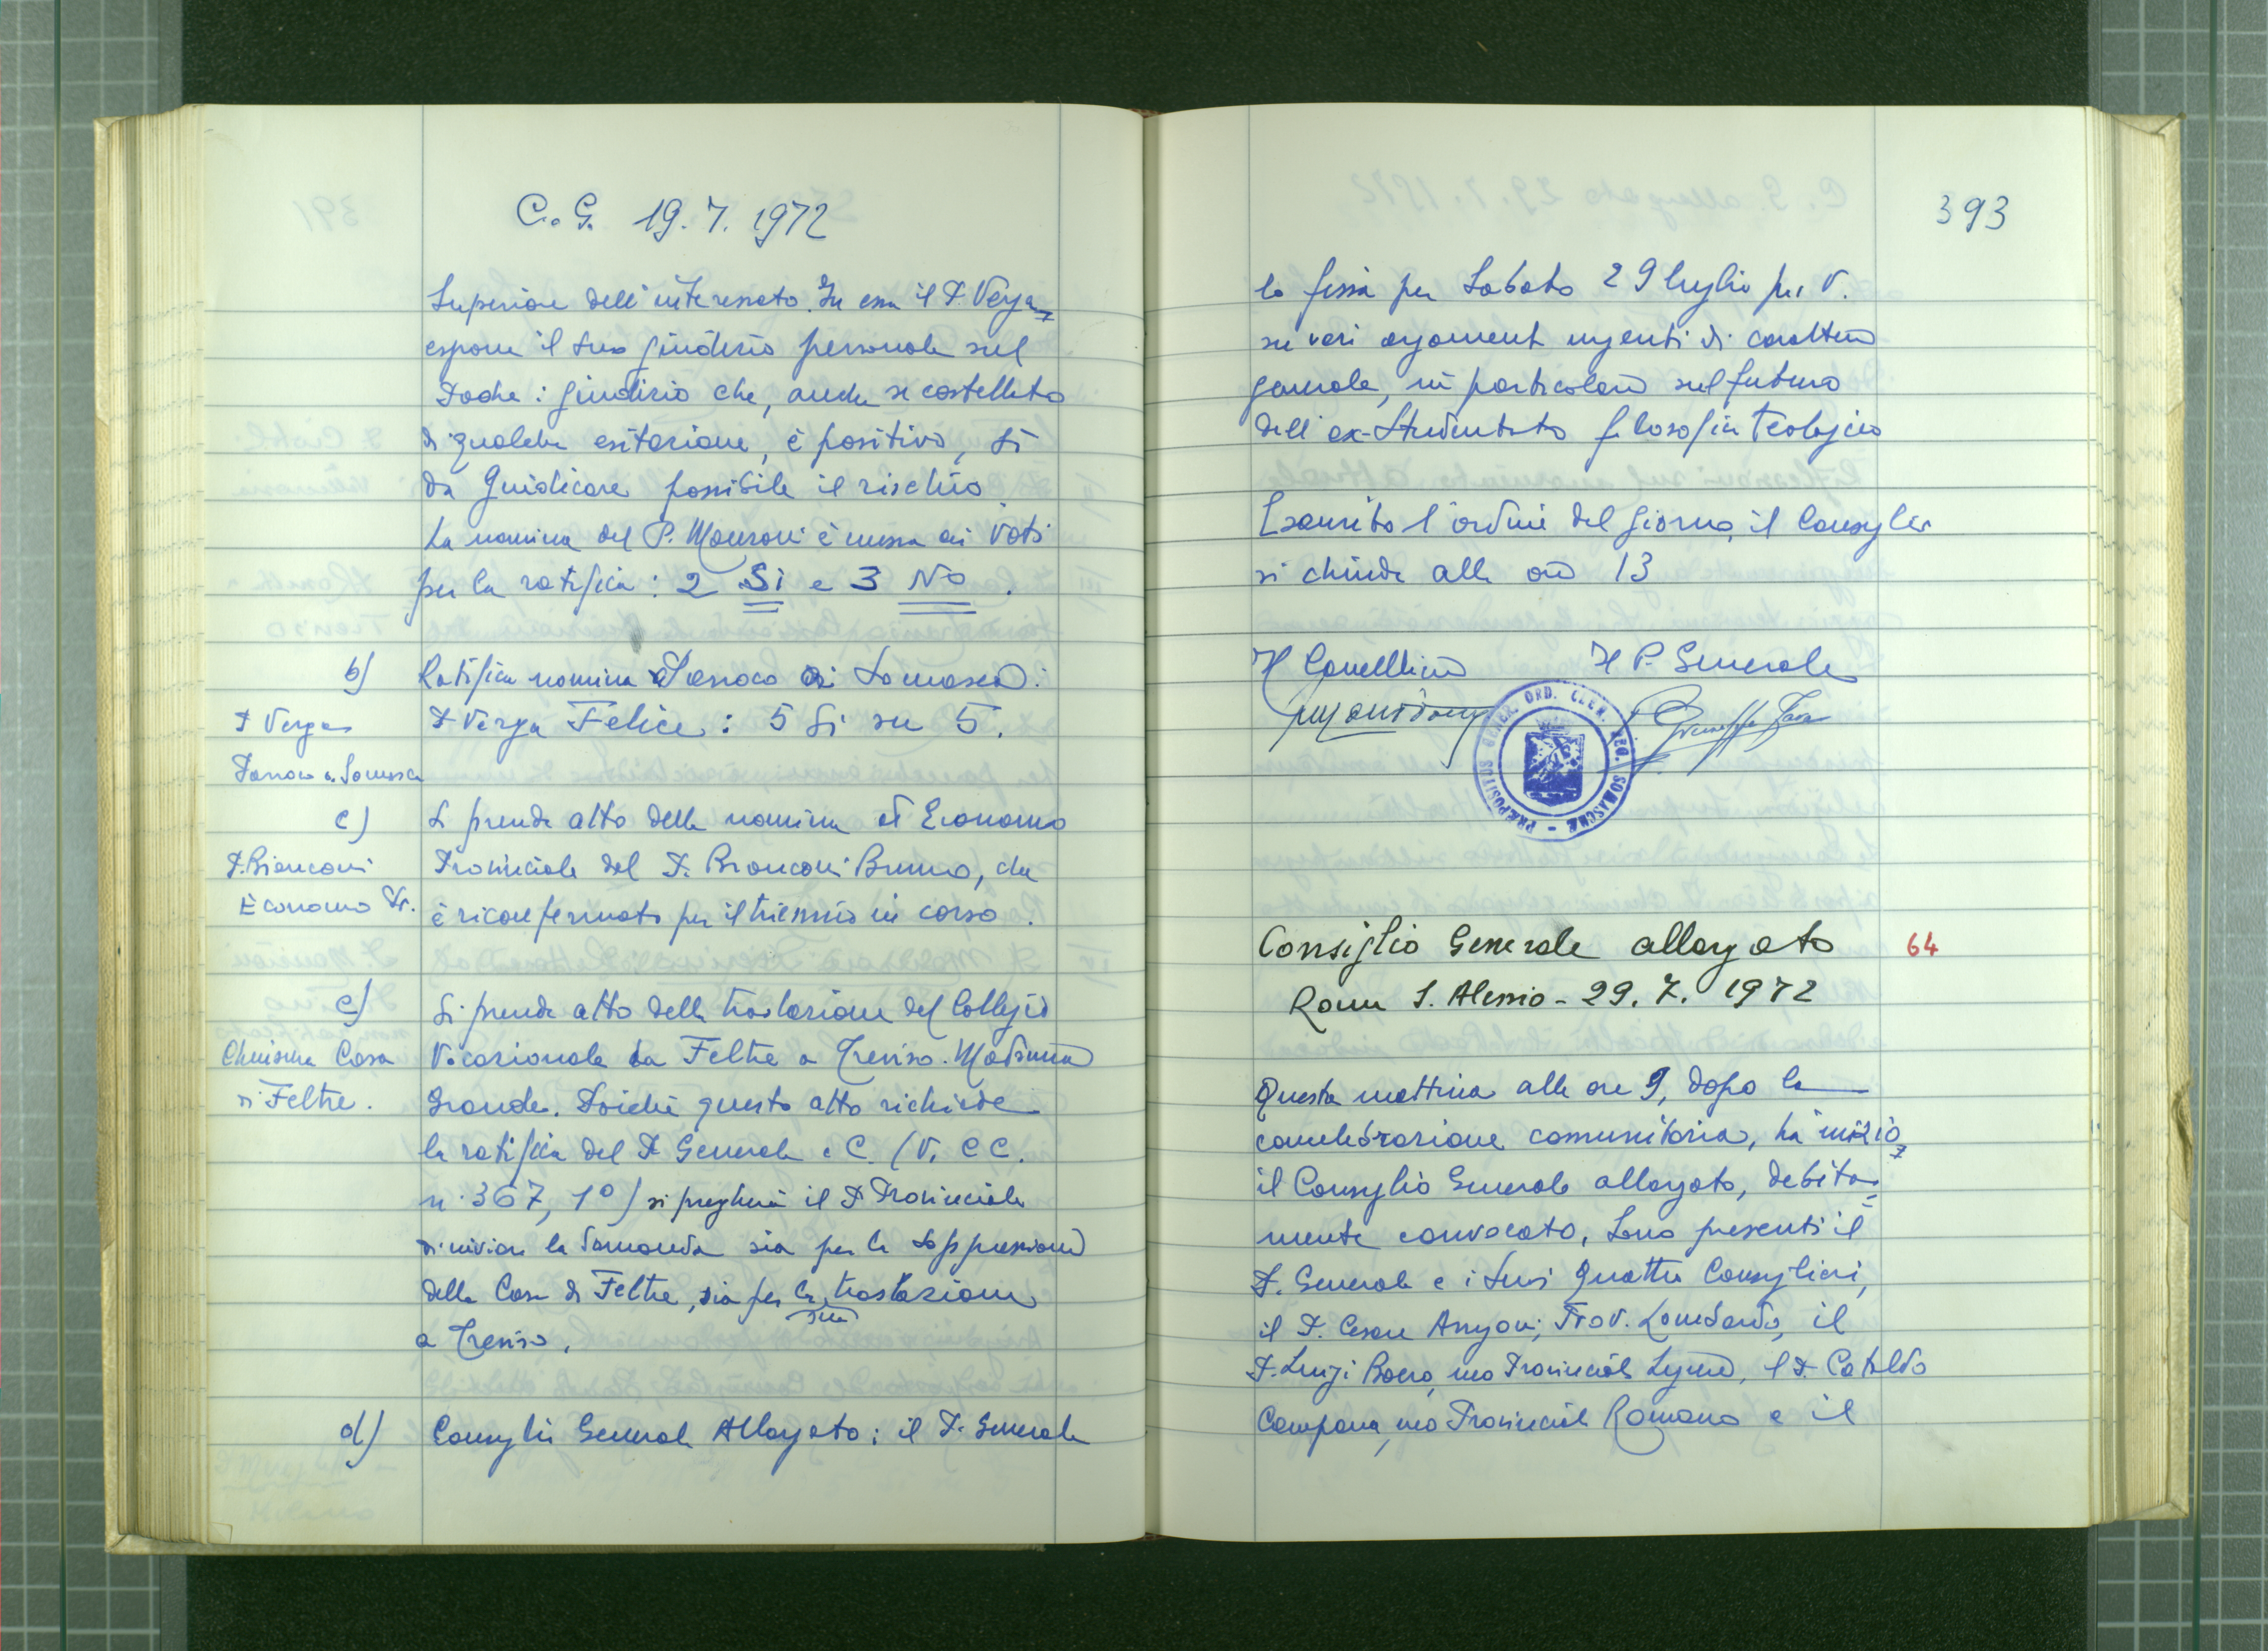 C. G. 19. 7. 1972
Superiore dell'interessato. In essa il P. Verga
espone il suo giudizio personale sul
Padre: giudizio che, anche se costellato
di qualche esitazione, è positivo, sì
da giudicare possibile il rischio.
La nomina del P. Manzoni è messa ai voti
per la ratifica: 2 Sì e 3 No.
b) Ratifica nomina Parroco di Somasca:
P Verga
P Verga Felice: 5 Sì su 5.
Parroco a Somasca
c) Si prende atto della nomina ad Economo
P. Bianconi
Provinciale del P. Bianconi Bruno, che
Economo Pr.
è riconfermato per il triennio in corso.
c) Si prende atto della traslazione del Collegio
Chiusura Casa
Vocazionale da Feltre a Treviso. Madonna
di Feltre.
Grande. Poichè questo atto richiede
la ratifica del P Generale e C. (V. CC.
n. 367, 1°) si pregherà il P Provinciale
di inviare la domanda sia per la soppressione
della Casa di Feltre, sia per la sua traslazione
a Treviso.
d) Consiglio Generale Allargato: il P. Generale
393
lo fissa per Sabato 29 luglio p. v.
su vari argomenti urgenti di carattere
generale, in particolare sul futuro
dell'ex-Studentato filosofico teologico
Esaurito l'ordine del giorno, il Consiglio
si chiude alle ore 13
Il Cancelliere Il P. Generale
PRÆPOSITUS GENER. ORD. CLER. REG. SOMASCHÆ
Consiglio Generale allargato 64
Roma S. Alessio - 29. 7. 1972
Questa mattina alle ore 9, dopo la
concelebrazione comunitaria, ha inizio
il Consiglio Generale allargato, debita=
mente convocato. Sono presenti il
P. Generale e i suoi quattro Consiglieri,
il P. Cesare Arrigoni, Prov. Lombardo, il
P. Luigi Boero, Provinciale Ligure, il P. Cataldo
Campana, Provinciale Romano e il